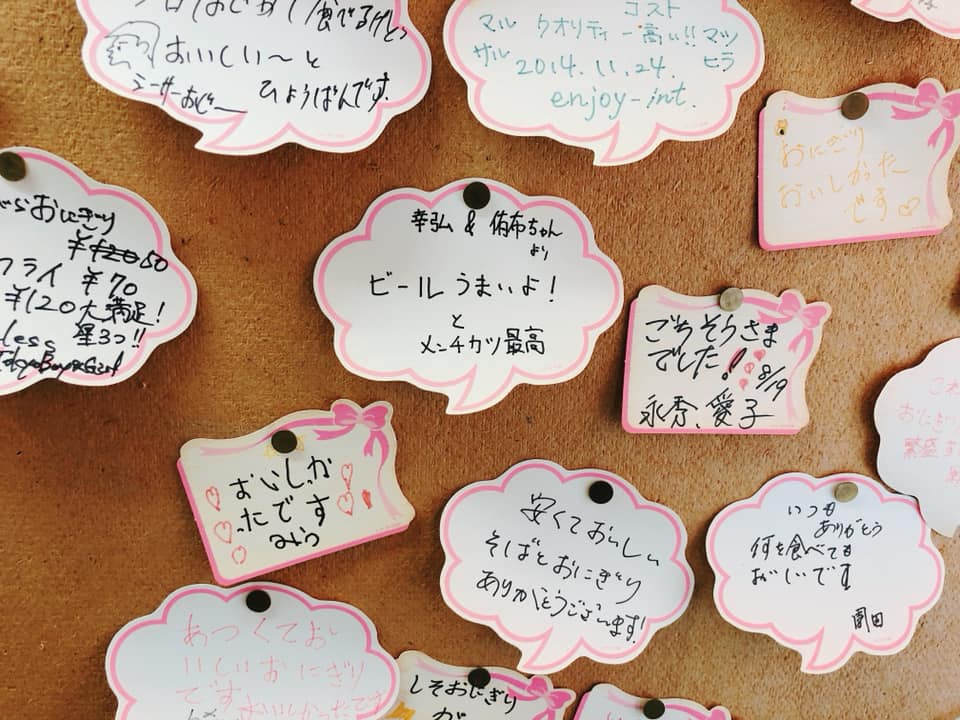 おいしい〜と
ひょうばんです。
コスト
クオリティー高い!!
マル
サル
マツ
ヒラ
2014.11.24.
enjoy-int.
おにぎり
おいしかった
です♡
おにぎり
フライ ¥70
¥120 大満足!
星3つ!!
幸弘 & 侑布ちゃん
より
ビールうまいよ!
と
メンチカツ最高
ごちそうさま
でした!
8/19
永秀、愛子
おいしか
ったです
みう
安くておいしい
そばとおにぎり
ありがとうございます!
いつも
ありがとう
何を食べても
おいしいです
園田
おにぎり
繁盛
あつくてお
いしいおにぎり
です
しそおにぎり
が